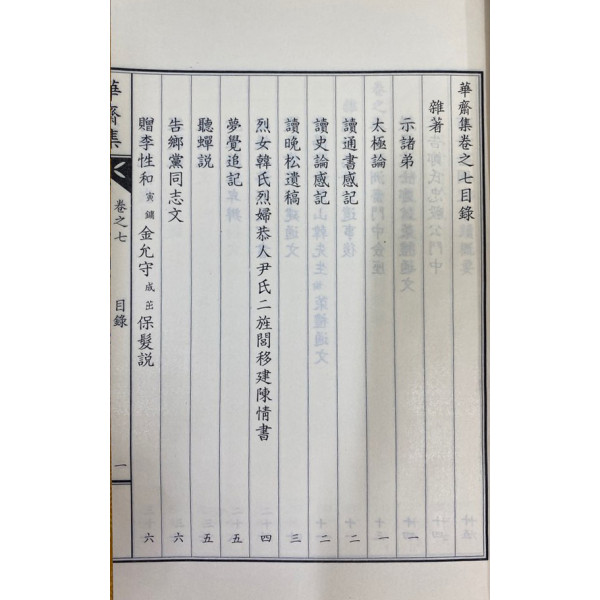 華齋集卷之七目錄
雜著
示諸弟 一
太極論 一
讀通書感記 二
讀史論感記 二
讀晚松遺稿 三
烈女韓氏烈婦恭人尹氏二旌閭移建陳情書 四
夢覺追記 五
聽蟬説 五
告鄉黨同志文 六
贈李性和寅鏞金允守成茁保髮説 六
華齋集 卷之七 目錄 一